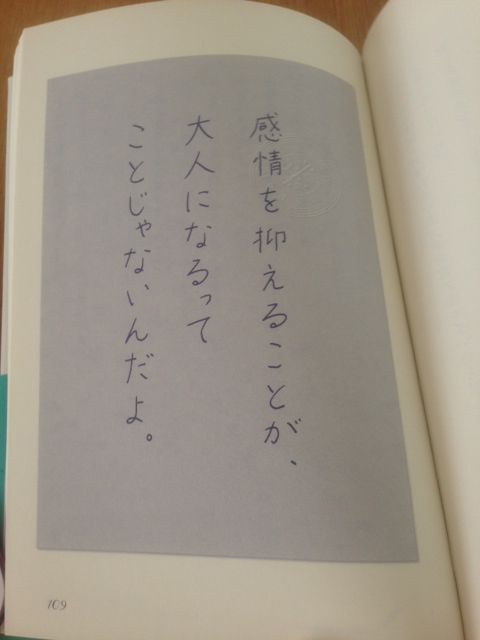 感情を抑えることが、
大人になるって
ことじゃないんだよ。
109